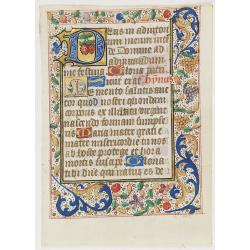 Deus in adiutor
ium meum inte
de Domine ad
adiuuandum
me festina Gloria patri
Sicut erat Hymnus
Memento salutis auc
tor quod nostri quondam
corpus ex illibata virgine
nascendo formam sumpse
ris Maria mater gratie
mater misericordie tu nos
ab hoste protege et hora
mortis suscipe Gloria
tibi dne qui natus es de